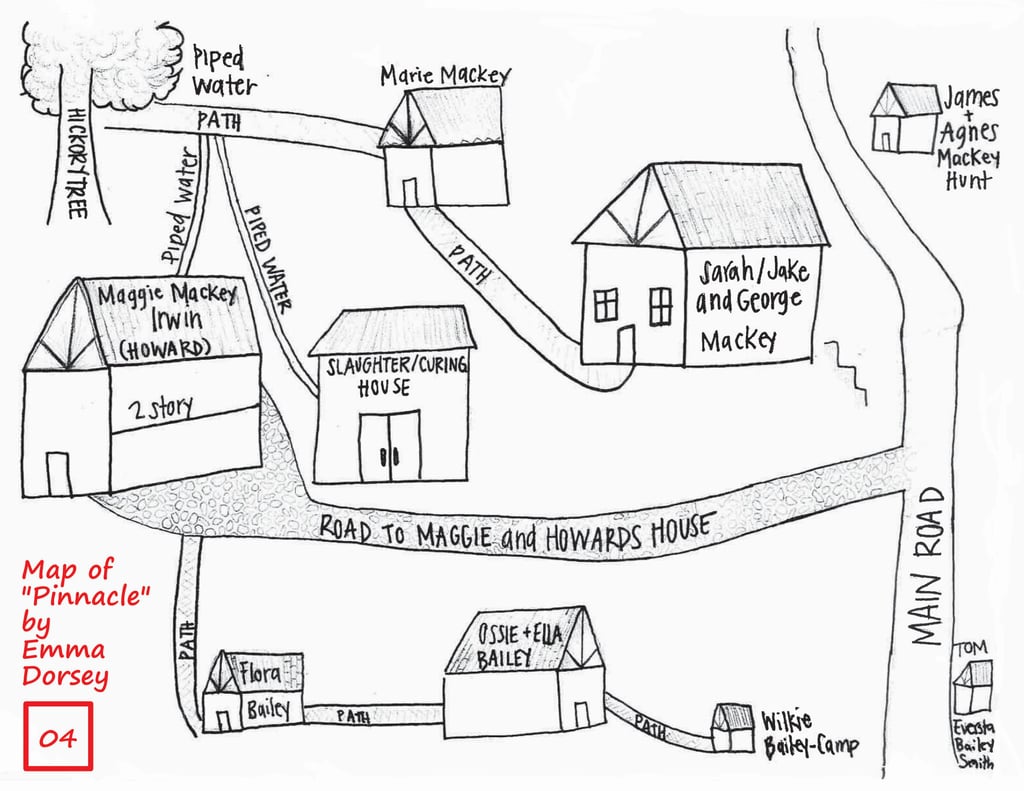 Piped
Water
PATH
HICKORY TREE
Piped Water
PIPED WATER
Marie Mackey
James
+
Agnes
Mackey
Hunt
PATH
Sarah/Jake
and George
Mackey
Maggie Mackey
Irwin
(HOWARD)
2 Story
SLAUGHTER/CURING
HOUSE
ROAD TO MAGGIE and HOWARDS HOUSE
MAIN ROAD
Map of
"Pinnacle"
by
Emma
Dorsey
04
PATH
Flora
Bailey
PATH
OSSIE + ELLA
BAILEY
PATH
Wilkie
Bailey-Camp
TOM
Eversta
Bailey
Smith